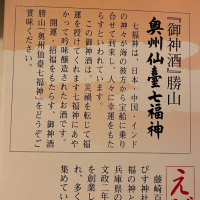 『御神酒』勝山
奥州仙臺七福神
七福神は、日本・中国・インド
の神々が海の彼方から宝船に乗り
合せて到来し、人々に幸運をもた
らすといわれています。
この御神酒は、災禍を転じて福
運を授けてくれます七福神にあや
かって吟味醸造されたお酒です。
開運、招福をもたらす、御神酒
勝山『奥州仙臺七福神』をどうぞご
賞味ください。
えび
藤崎百
びす神社
兵庫県の
文政二年
を創業し
れ、多く
集めてい